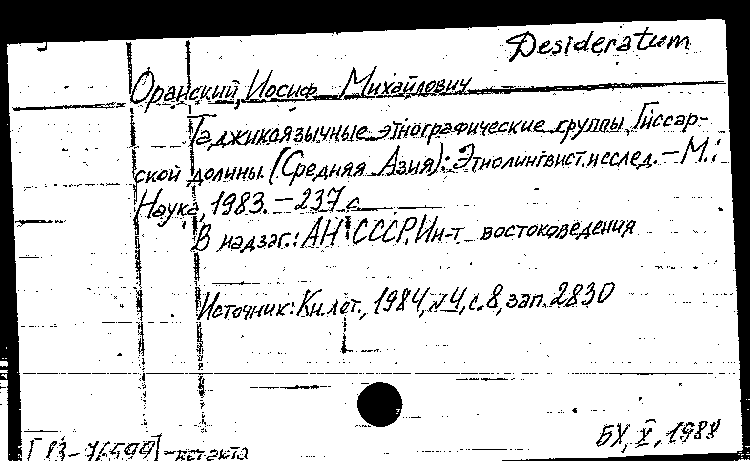 Desideratum
Оранский, Иосиф Михайлович
Таджикоязычные этнографические группы Гиссар-
ской долины (Средняя Азия): Этнолингвист. исслед. – М.:
Наука, 1983. – 237 с.
В надзаг.: АН СССР, Ин-т востоковедения
Источник: Кн. лет., 1984, №4, с. 8, зап. 2830
БХ, X, 1988
[83-76599]